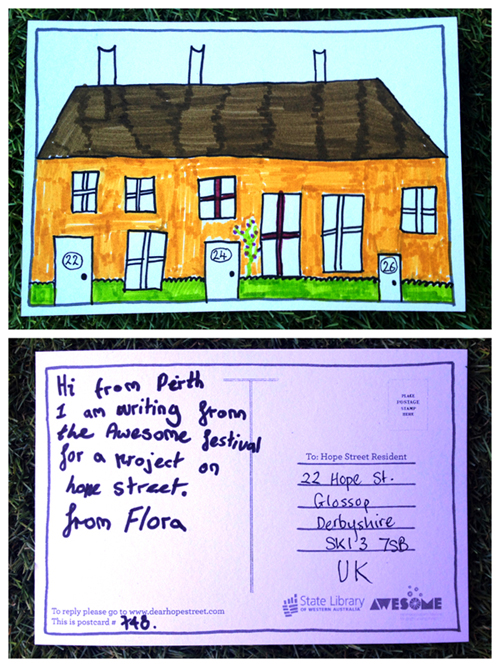 22
24
26
Hi from Perth
I am writing from
the Awesome festival
for a project on
hope street.
from Flora
PLACE
POSTAGE
STAMP
HERE
To: Hope Street Resident
22 Hope St.
Glossop
Derbyshire
SK13 7SB
UK
To reply please go to www.dearhopestreet.com
This is postcard # 748.
State Library
OF WESTERN AUSTRALIA
AWESOME